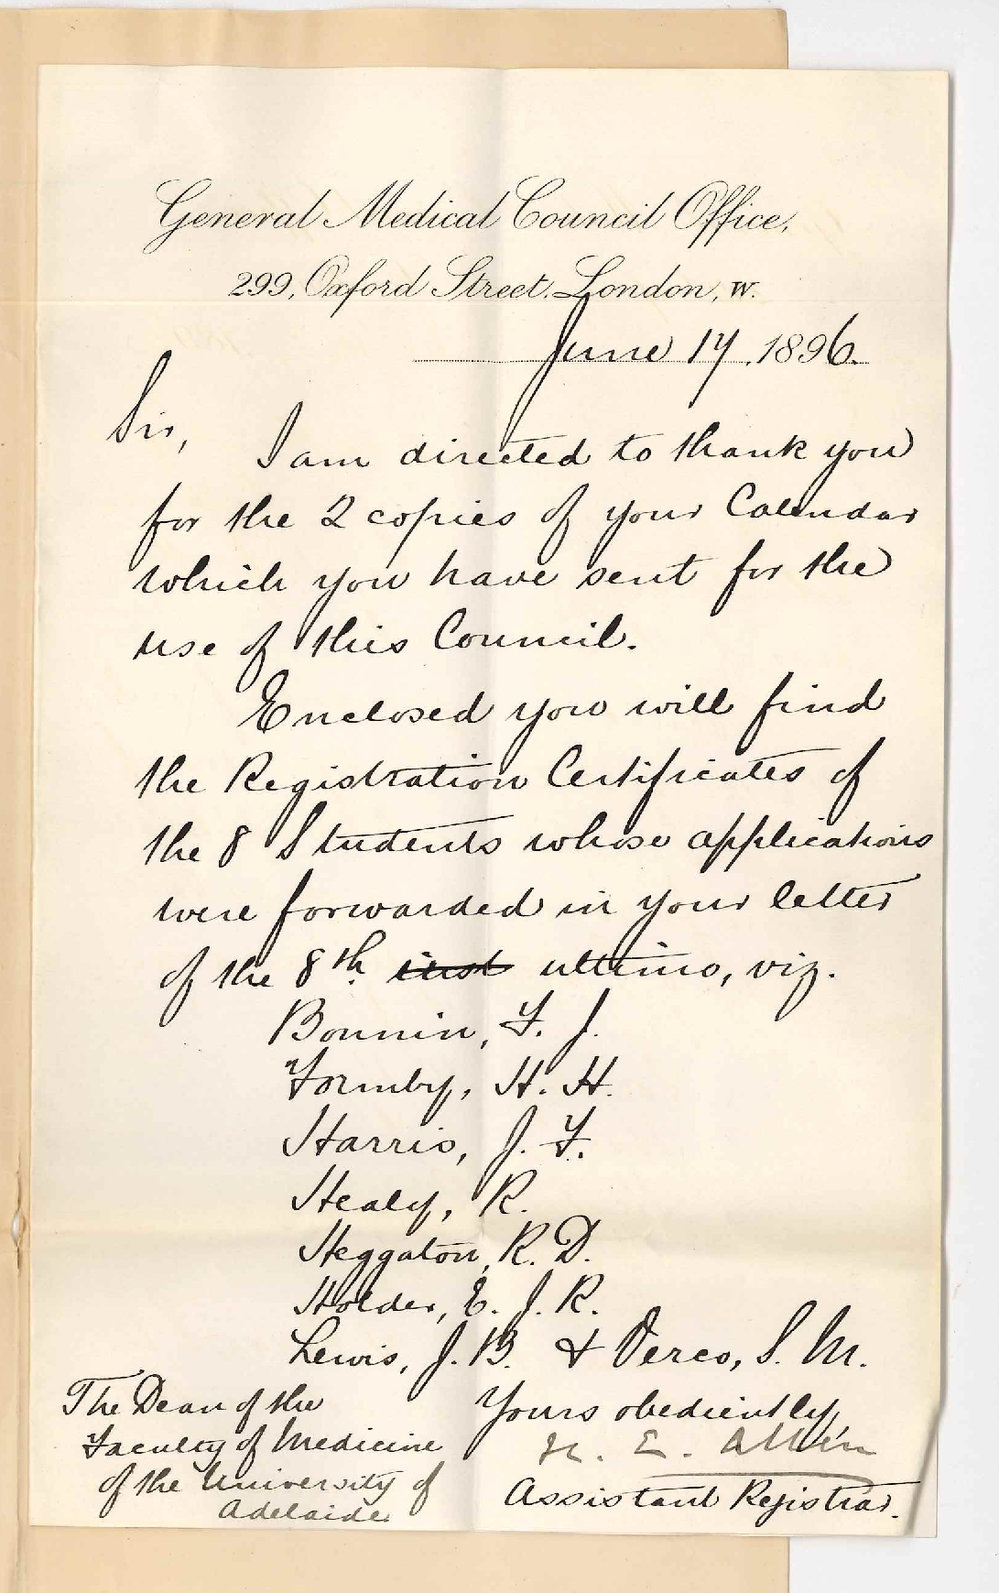 General Medical Council Office,
299, Oxford Street, London, W.
June 17, 1896.
Sir,
I am directed to thank you
for the 2 copies of your Calendar
which you have sent for the
use of this Council.
Enclosed you will find
the Registration Certificates of
the 8 Students whose applications
were forwarded in your letter
of the 8th. inst ultimo, viz.
Bonnin, F. J.
Formby, H. H.
Harris, J. F.
Healy, R.
Heggaton, R. D.
Holder, E. J. R.
Lewis, J. B. & Verco, S. M.
Yours obediently,
Assistant Registrar.
The Dean of the
Faculty of Medicine
of the University of
Adelaide